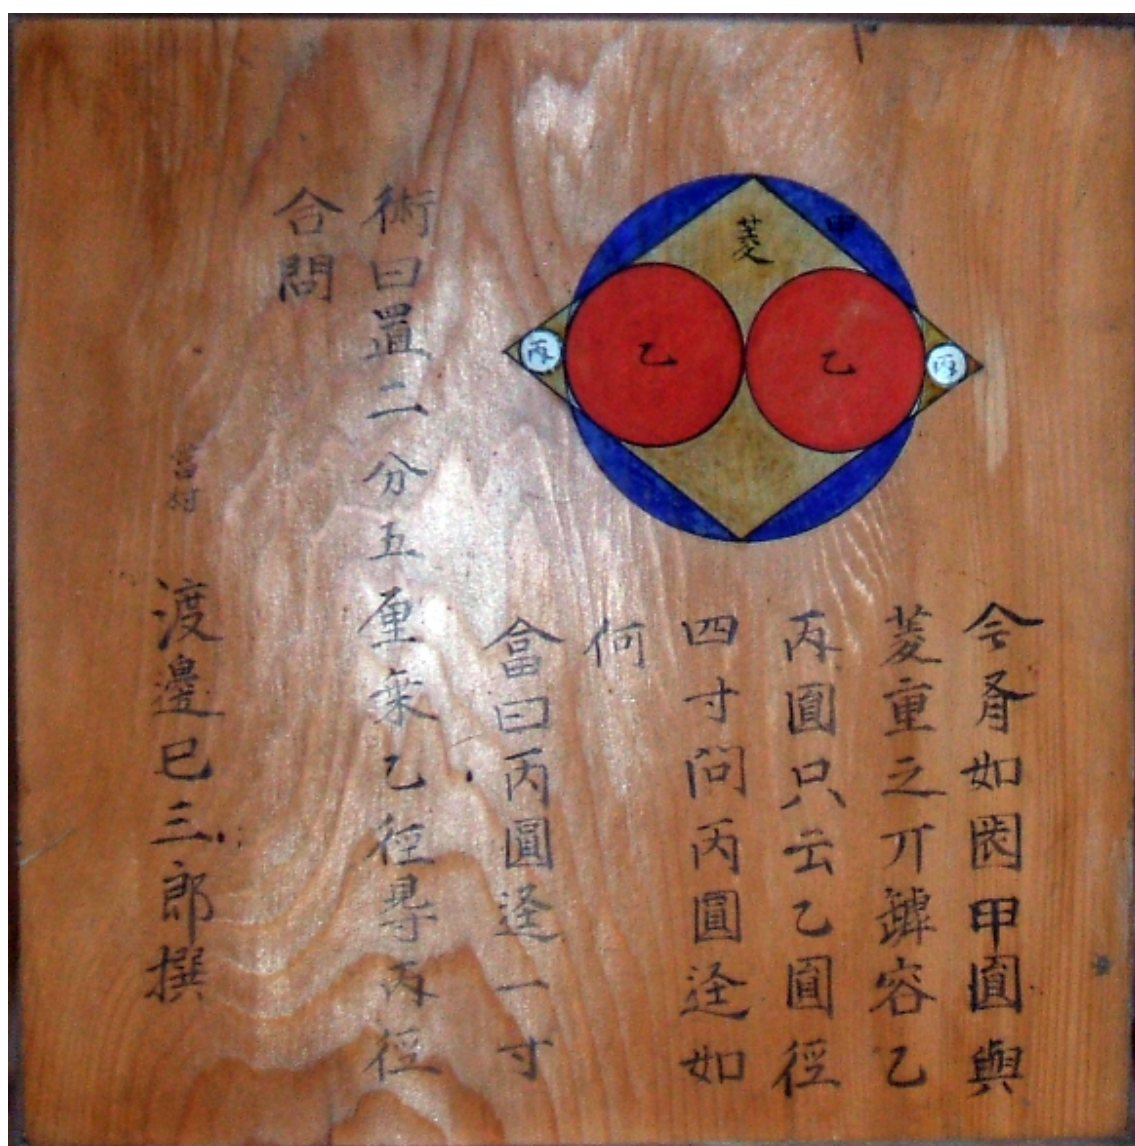 甲
菱
乙
乙
丙
丙
今有如図甲圓與
菱重之丌罅容乙
丙圓只云乙圓徑
四寸問丙圓逕如
何
畣曰丙圓逕一寸
術曰置二分五厘乗乙徑得丙徑
合問
當村 渡邊巳三郎撰